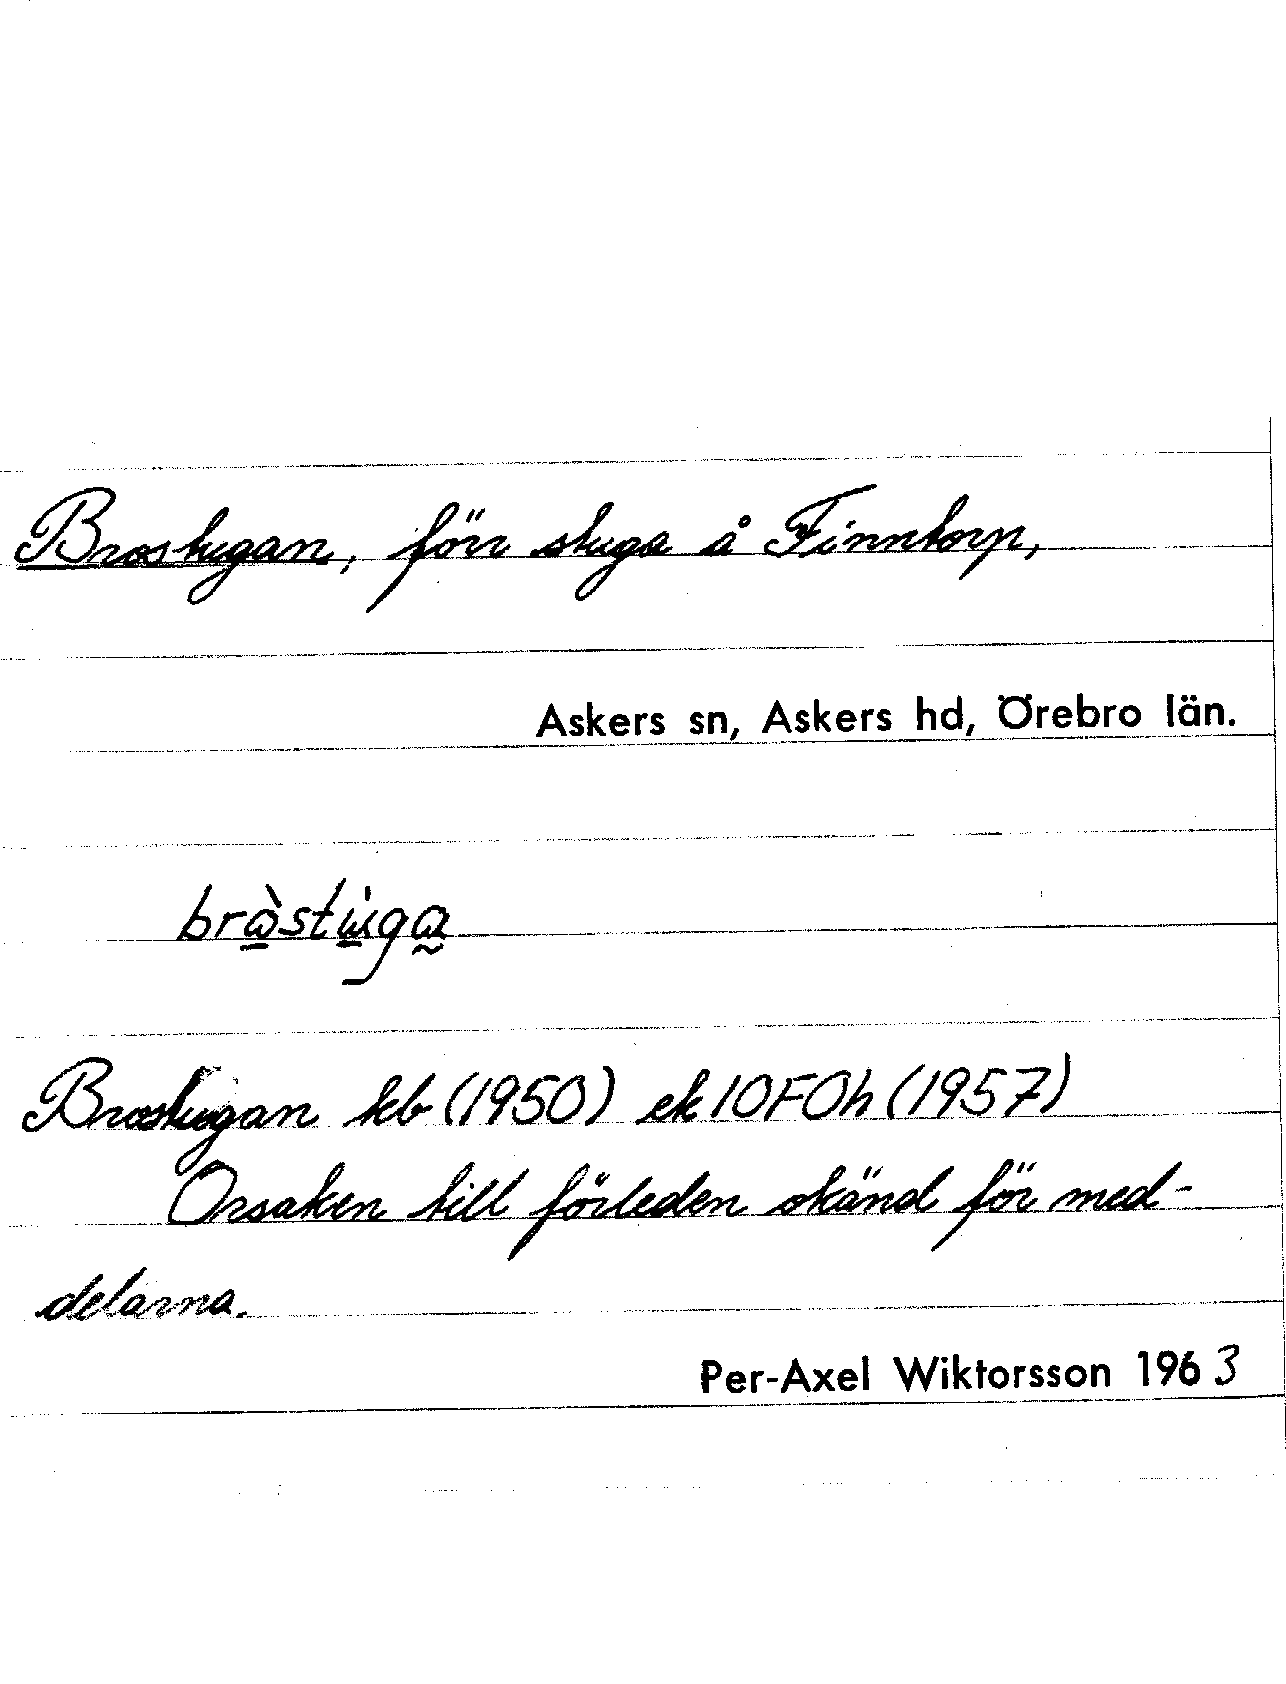 Brostugan, förr stuga å Finntorp,
Askers sn, Askers hd, Örebro län.
bròstu̇ga
Brostugan kb (1950) ek 10F0h (1957)
Orsaken till förleden okänd för med-
delarna.
Per-Axel Wiktorsson 1963